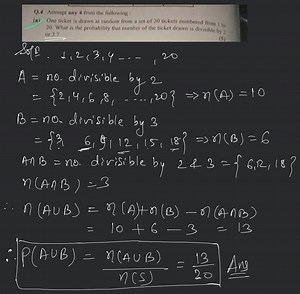 Q.4 Attempt any 4 from the following
(a) One ticket is drawn at random from a set of 20 tickets numbered from 1 to
20. What is the probability that number of the ticket drawn is divisible by 2
or 3 ?
Solⁿ. 1, 2, 3, 4 ---- , 20
A = no. divisible by 2
= {2, 4, 6, 8, ----, 20} ⇒ n(A) = 10
B = no. divisible by 3
= {3, 6, 9, 12, 15, 18} ⇒ n(B) = 6
A∩B = no. divisible by 2 & 3 = {6, 12, 18}
n(A∩B) = 3
∴ n(A∪B) = n(A) + n(B) - n(A∩B)
= 10 + 6 - 3 = 13
∴ P(A∪B) = n(A∪B) / n(S) = 13/20 Ans